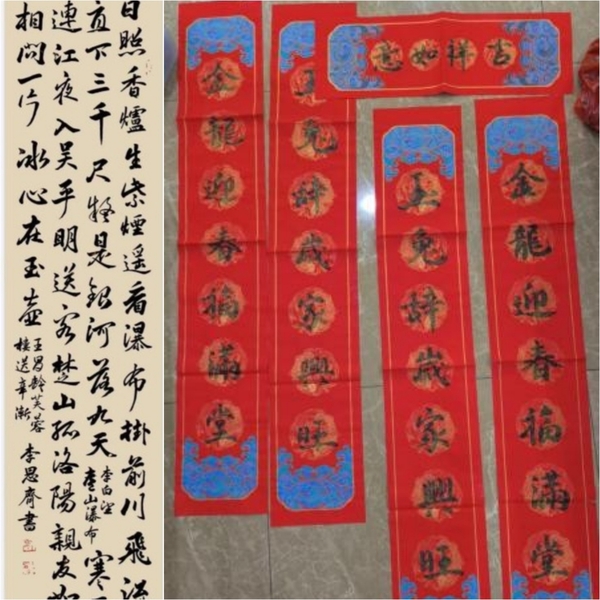 日照香爐生紫煙遥看瀑布掛前川飛流
直下三千尺疑是銀河落九天
李白望
廬山瀑布
寒
連江夜入吴平明送客楚山孤洛陽親友如
相問一片冰心在玉壺
王昌齡芙蓉
樓送辛漸
李思齊書
吉祥如意
金龍迎春福滿堂
玉兔辭歲家興旺
玉兔辭歲家興旺
金龍迎春福滿堂